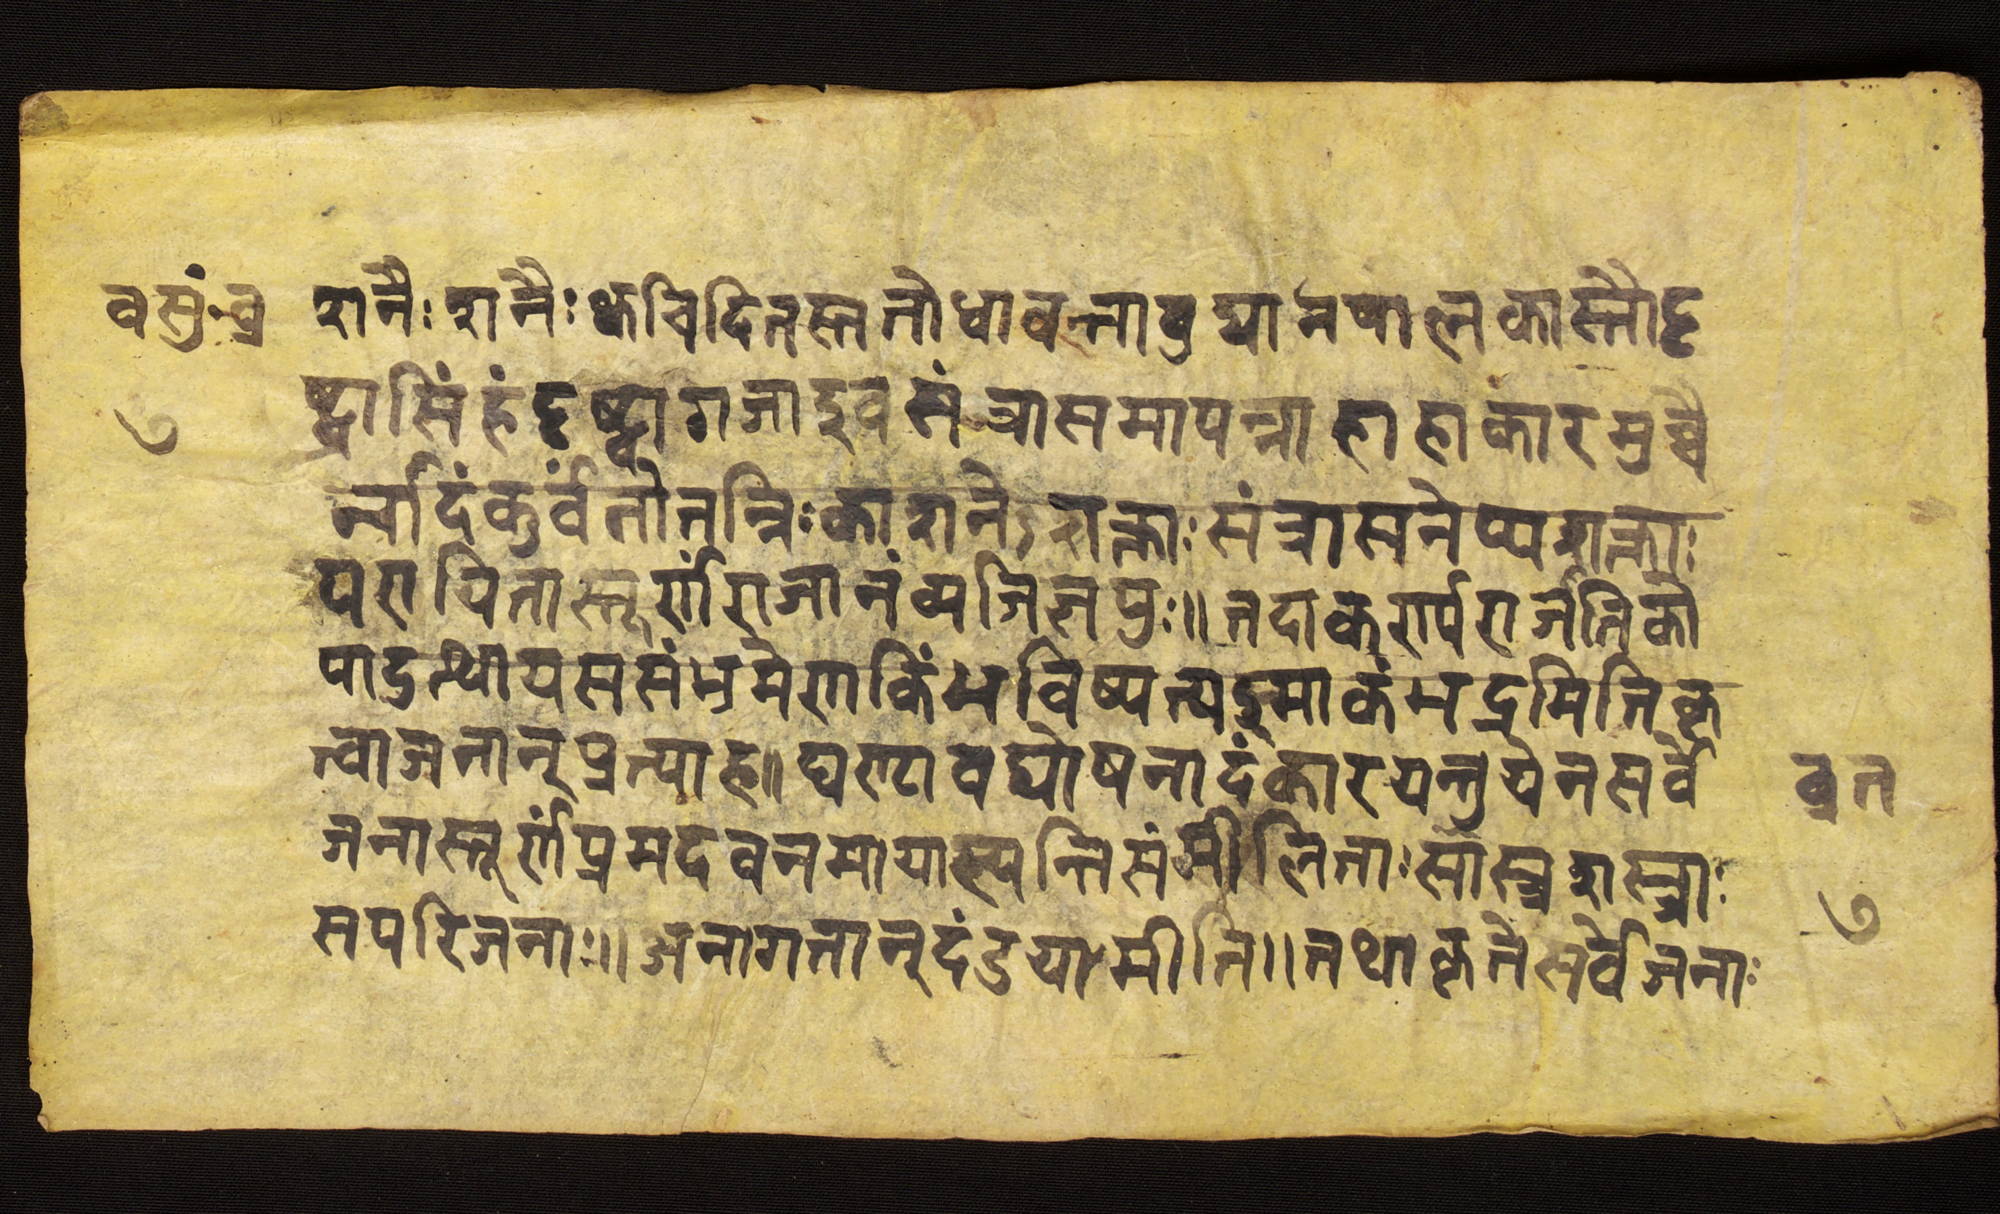 वसुं-व्र
७
शनैः शनैः क्वचिदितस्ततोधावन्तावुद्यानपालकास्तौदृ
ष्ट्वासिंहंदृष्ट्वागजाइवसंत्रासमापन्नाहाहाकारमुच्चै
र्नादंकुर्वतोतन्निःकाशनेऽशक्ताःसंत्रासनेप्यशक्ताः
परायितास्तूर्णंराजानंव्यजिज्ञपुः॥ तदाकर्ण्यराजेतिको
पादुत्थायससंभ्रमेणकिंभविष्यत्यस्माकंभद्रमितिकृ
त्वाजनान्प्रत्याह॥ घण्टावघोषनादंकारयन्तुयेनसर्वे
जनास्तूर्णंप्रमदवनमायास्यन्तिसंमीलिताःसास्त्रशस्त्राः
सपरिजनाः॥ अनागतान्दंडयामीति॥ तथाकृतेसर्वेजनाः
व्रत
७